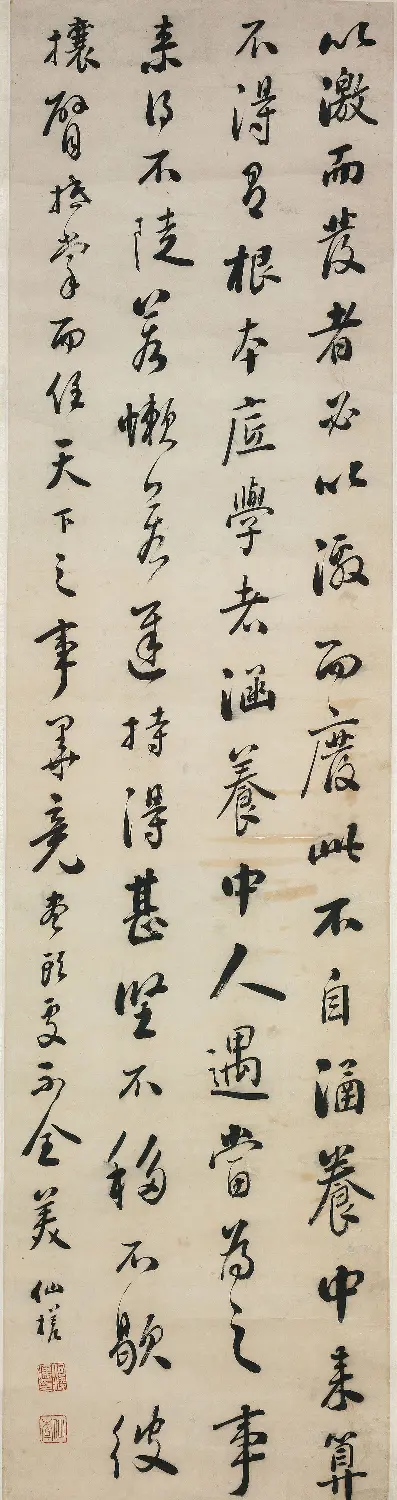 以激而發者必以激而廢此不自涵養中來算
不得有根本底學者涵養中人遇當為之事
來得不陡若懶若遲持得甚堅不移不歇彼
攘臂抵掌而任天下之事畢竟盡頭處不全美 仙槎